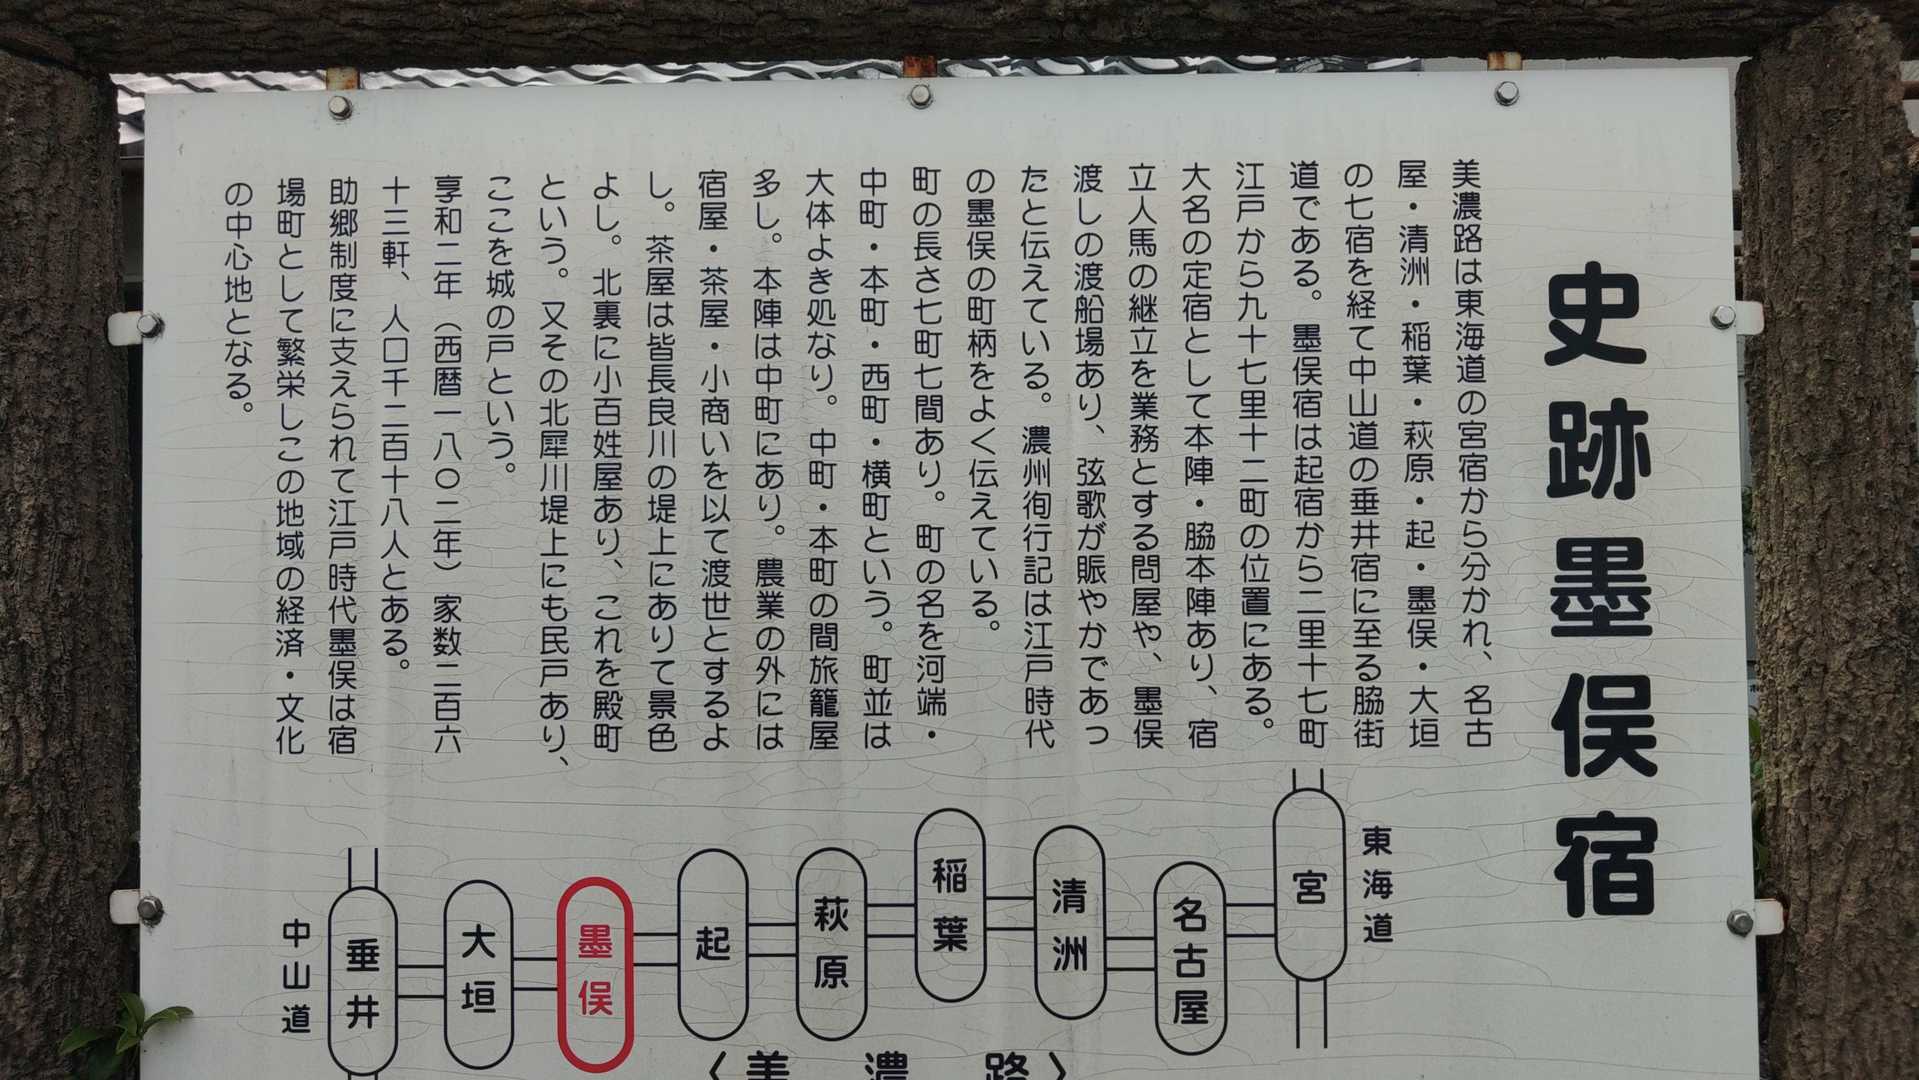 史跡墨俣宿
美濃路は東海道の宮宿から分かれ、名古
屋・清洲・稲葉・萩原・起・墨俣・大垣
の七宿を経て中山道の垂井宿に至る脇街
道である。墨俣宿は起宿から二里十七町
江戸から九十七里十二町の位置にある。
大名の定宿として本陣・脇本陣あり、宿
立人馬の継立を業務とする問屋や、墨俣
渡しの渡船場あり、弦歌が賑やかであっ
たと伝えている。濃州徇行記は江戸時代
の墨俣の町柄をよく伝えている。
町の長さ七町七間あり。町の名を河端・
中町・本町・西町・横町という。町並は
大体よき処なり。中町・本町の間旅籠屋
多し。本陣は中町にあり。農業の外には
宿屋・茶屋・小商いを以て渡世とするよ
し。茶屋は皆長良川の堤上にありて景色
よし。北裏に小百姓屋あり、これを殿町
という。又その北犀川堤上にも民戸あり、
ここを城の戸という。
享和二年（西暦一八〇二年）家数二百六
十三軒、人口千二百十八人とある。
助郷制度に支えられて江戸時代墨俣は宿
場町として繁栄しこの地域の経済・文化
の中心地となる。
東海道
宮
名古屋
清洲
稲葉
萩原
起
墨俣
大垣
垂井
中山道
〈美濃路〉